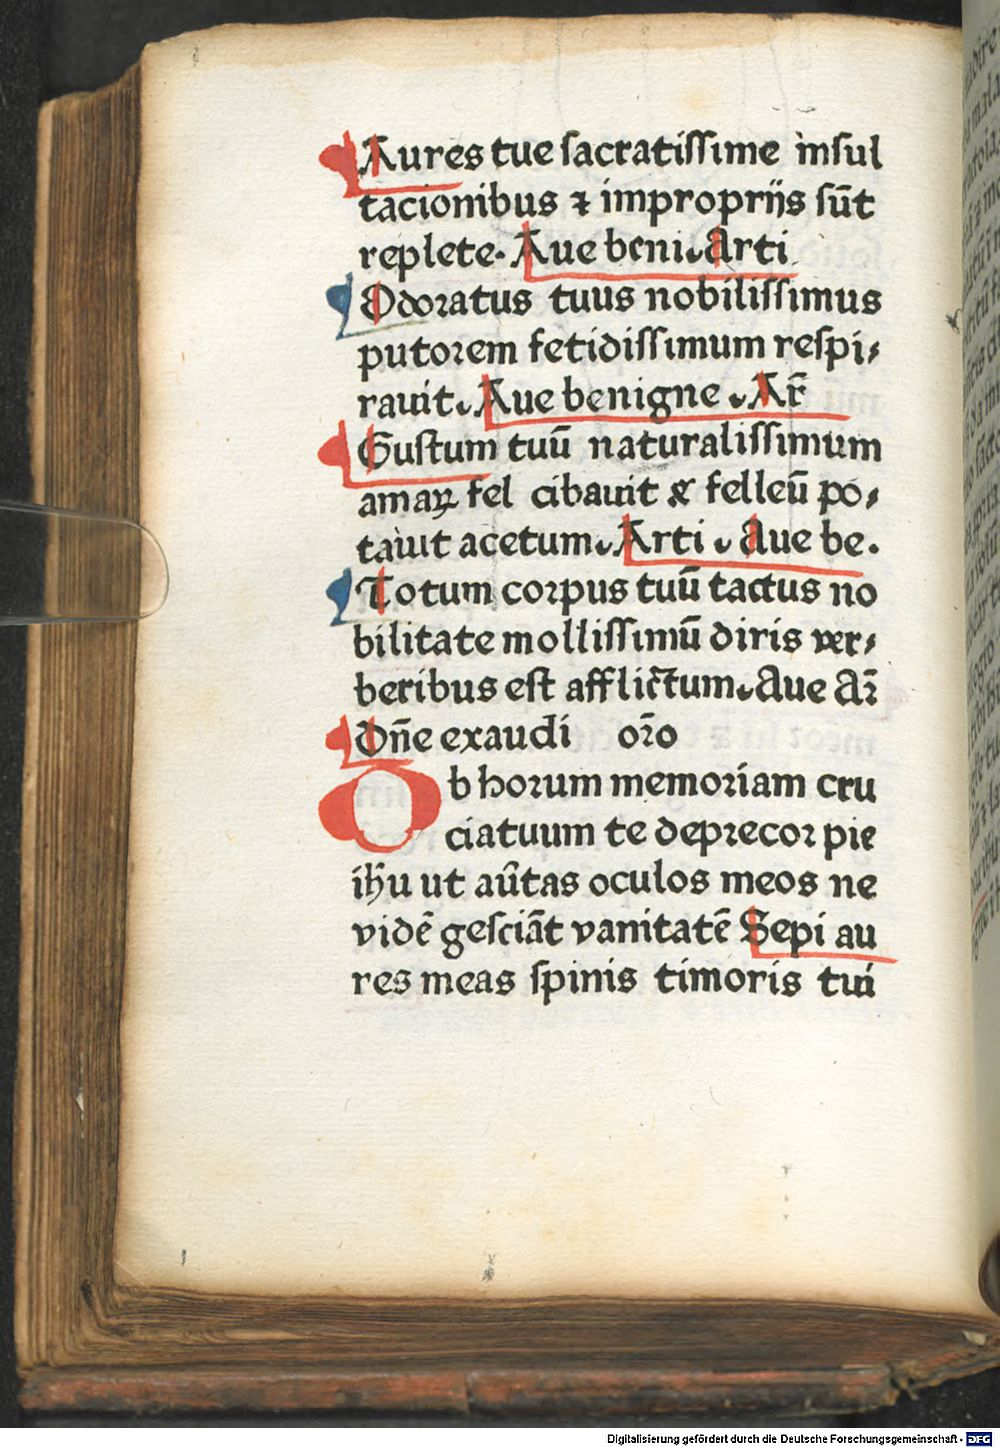 Aures tue sacratissime insul
tacionibus ⁊ improprijs sūt
replete. Aue beni. Arti
Odoratus tuus nobilissimus
putorem fetidissimum respi-
rauit. Aue benigne. Ar̄
Gustum tuū naturalissimum
amaꝝ fel cibauit & felleū po-
tauit acetum. Arti. Aue be.
Totum corpus tuū tactus no
bilitate mollissimū diris ver-
beribus est afflictum. Aue Ar̄
Dn̄e exaudi or̄o
Ob horum memoriam cru
ciatuum te deprecor pie
ih̄u ut aūtas oculos meos ne
vidē gesciāt vanitatē Sepi au
res meas spinis timoris tui
Digitalisierung gefördert durch die Deutsche Forschungsgemeinschaft - DFG